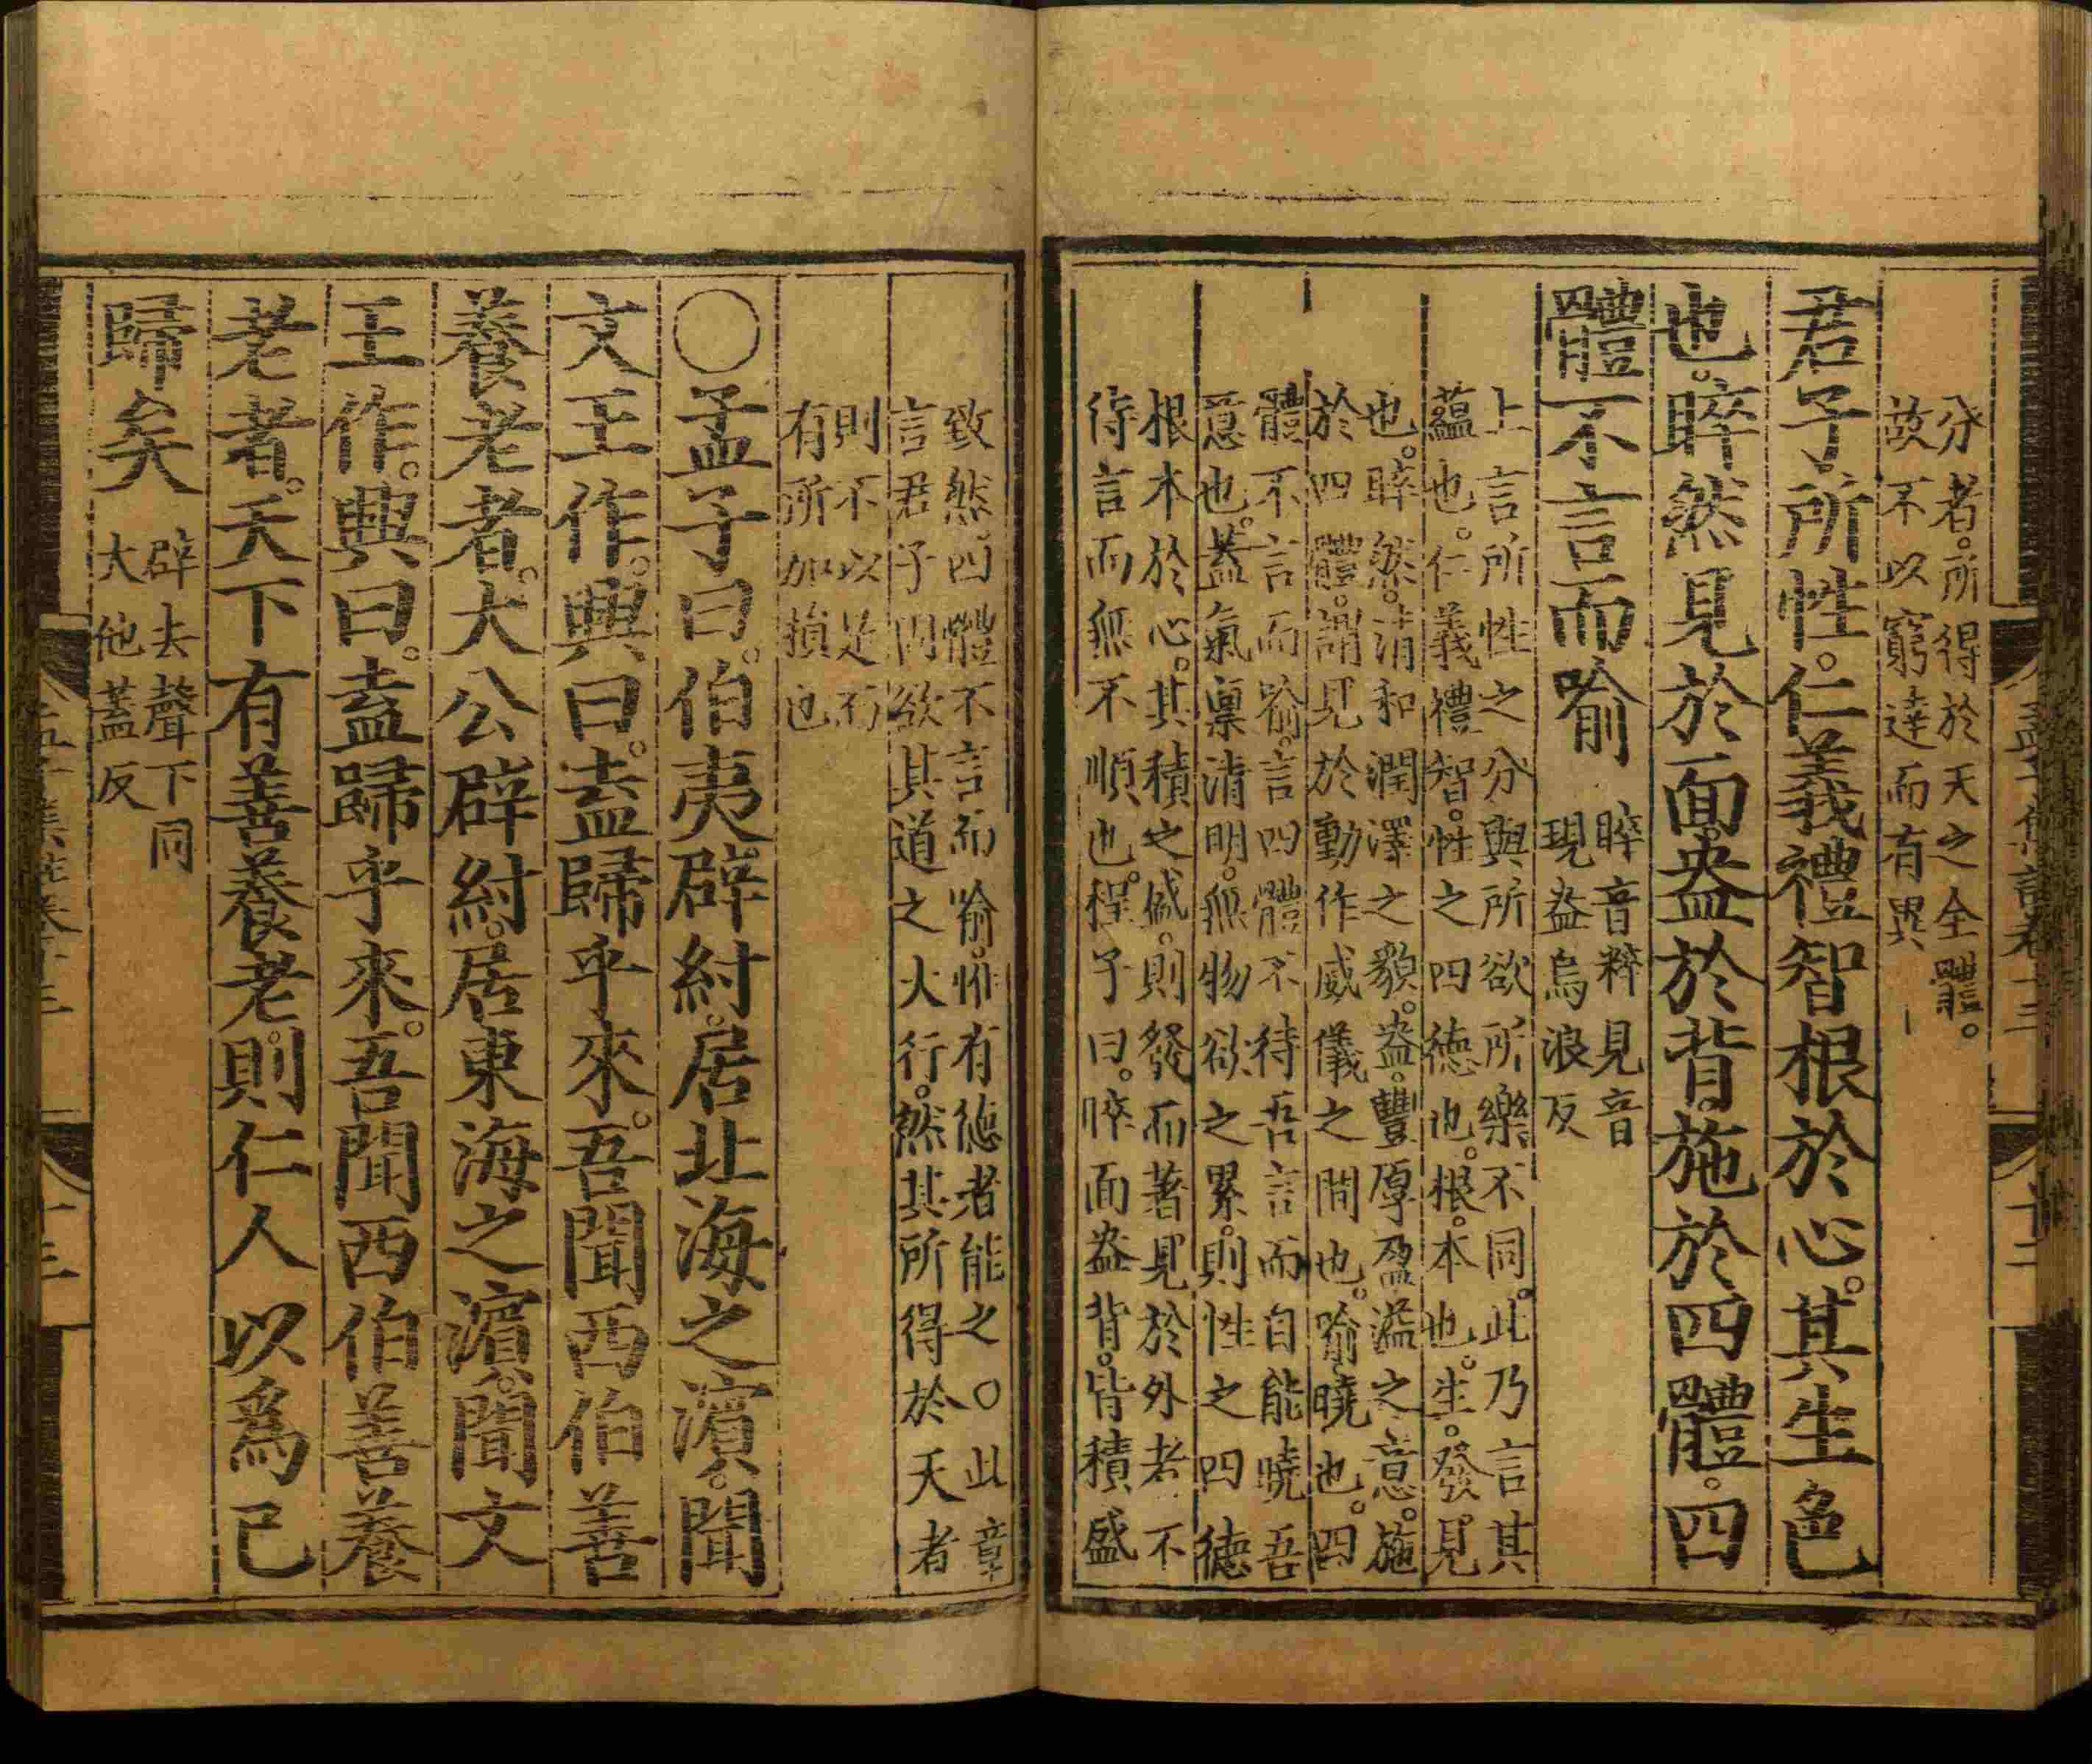 分者。所得於天之全體。
故不以窮達而有異
君子所性。仁義禮智根於心。其生色
也。睟然見於面。盎於背。施於四體。四
體不言而喻
睟音粹見音
現盎烏浪反
上言所性之分與所欲所樂不同。此乃言其
蘊也。仁義禮智。性之四德也。根。本也。生。發見
也。睟然。清和潤澤之貌。盎。豐厚盈溢之意。施
於四體。謂見於動作威儀之間也。喻。曉也。四
體不言而喻。言四體不待吾言而自能曉吾
意也。蓋氣禀清明。無物欲之累。則性之四德
根本於心。其積之盛。則發而著見於外者不
待言而無不順也。程子曰。睟面盎背。皆積盛
致然。四體不言而喻。惟有德者能之○此章
言君子固欲其道之大行。然其所得於天者
則不以是而
有所加損也
○孟子曰。伯夷辟紂。居北海之濱。聞
文王作。興曰。盍歸乎來。吾聞西伯善
養老者。大公辟紂。居東海之濱。聞文
王作。興曰。盍歸乎來。吾聞西伯善養
老者。天下有善養老。則仁人以爲己
歸矣
辟去聲下同
大他蓋反